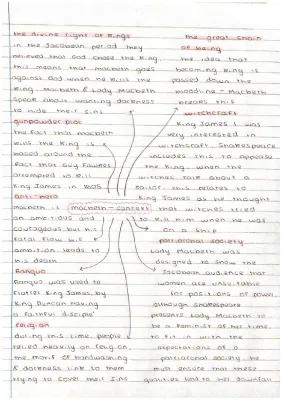 the divine right of kings
in the Jacobean period they
believed that God chose the king.
this means that macbeth goes
against God when he kills the
king. Macbeth & Lady Macbeth
speak about wanting darkness
to hide their sins
gunpowder plot
the fact that macbeth
kills the king is
based around the
fact that Guy Fawkes
attempted to kill
King James in 1605
anti-hero
macbeth is
an ambitious and
courageous but his
fatal flaw is
ambition leads to
his death
Banquo
Banquo was used to
flatter King James, by
King Duncan having
a faithful disciple
religion
during this time, people
relied heavily on religion,
the motif of handwashing
& darkness link to them
trying to cover their sins
macbeth - context
the great chain
of being
the idea that
becoming king is
passed down the
bloodline - macbeth
breaks this
witchcraft
King James I was
very interested in
witchcraft. Shakespeare
includes this to appease
the king. when the
witches talk about a
sailor, this relates to
King James as he thought
that witches tried
to kill him when he was
on a ship
patriarchal society
Lady Macbeth was
designed to show the
Jacobean audience that
women are unsuitable
for positions of power.
although Shakespeare
presents Lady Macbeth to
be a feminist of her time,
to fit in with the
expectations of a
patriarchal society he
must ensure that these
qualities lead to her downfall